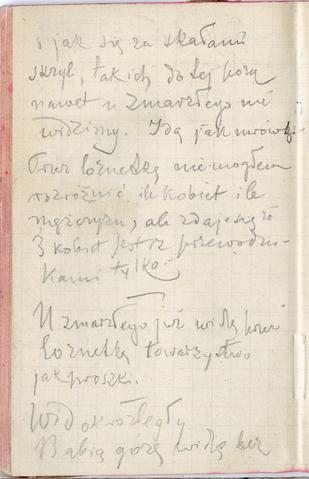 i jak się za skałami
skryli, tak ich do tej pory
nawet u Zmarzłego nie
widzimy. Idą jak mrówki.
Przez lornetkę nie mogłem
rozróżnić ile kobiet ile
mężczyzn, ale zdaje się że
3 kobiet jest z przewodni-
kami tylko.
U Zmarzłego już widzę przez
lornetkę towarzystwo
jak proszki.
Widok rozległy
Babią górę widzę bez